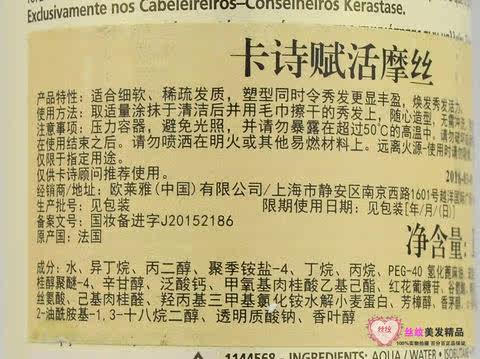 Exclusivamente nos Cabeleireiros–Conselheiros Kérastase.
卡诗赋活摩丝
产品特性：适合细软、稀疏发质，塑型同时令秀发更显丰盈，焕发秀发活力
使用方法：取适量涂抹于清洁后并用毛巾擦干的秀发上，随心造型，无需冲
注意事项：压力容器，避免光照，并请勿暴露在超过50℃的高温中，请勿破坏
在使用结束之后。请勿喷洒在明火或其他易燃材料上。远离火源-使用时请勿
仅限于指定用途。
仅供卡诗顾问推荐使用。
经销商/地址：欧莱雅(中国)有限公司/上海市静安区南京西路1601号越洋国际
生产批号：见包装 限期使用日期：见包装[年/月/(日)]
备案文号：国妆备进字J20152186
原产国：法国
净含量:
成分：水、异丁烷、丙二醇、聚季铵盐-4、丁烷、丙烷、PEG-40 氢化蓖麻油
桂醇聚醚-4、辛甘醇、泛酸钙、甲氧基肉桂酸乙基己酯、红花葡糖苷、谷氨酸
丝氨酸、己基肉桂醛、羟丙基三甲基氯化铵水解小麦蛋白、芳樟醇、香茅醇
2-油酰胺基-1,3-十八烷二醇、透明质酸钠、香叶醇
1144568 - INGREDIENTS: AQUA / WATER • ISOBUTANE
丝纹
丝纹美发精品
100%实物拍摄 百分百正品保证